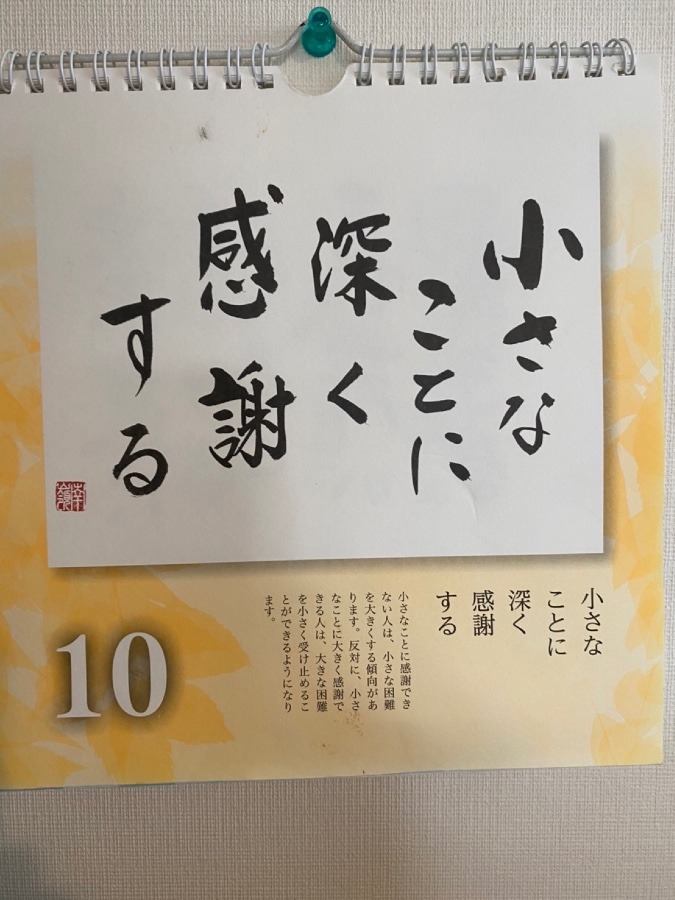 小さな
ことに
深く
感謝
する
小さな
ことに
深く
感謝
する
小さなことに感謝でき
ない人は、小さな困難
を大きくする傾向があ
ります。反対に、小さ
なことに大きく感謝で
きる人は、大きな困難
を小さく受け止めるこ
とができるようになり
ます。
10